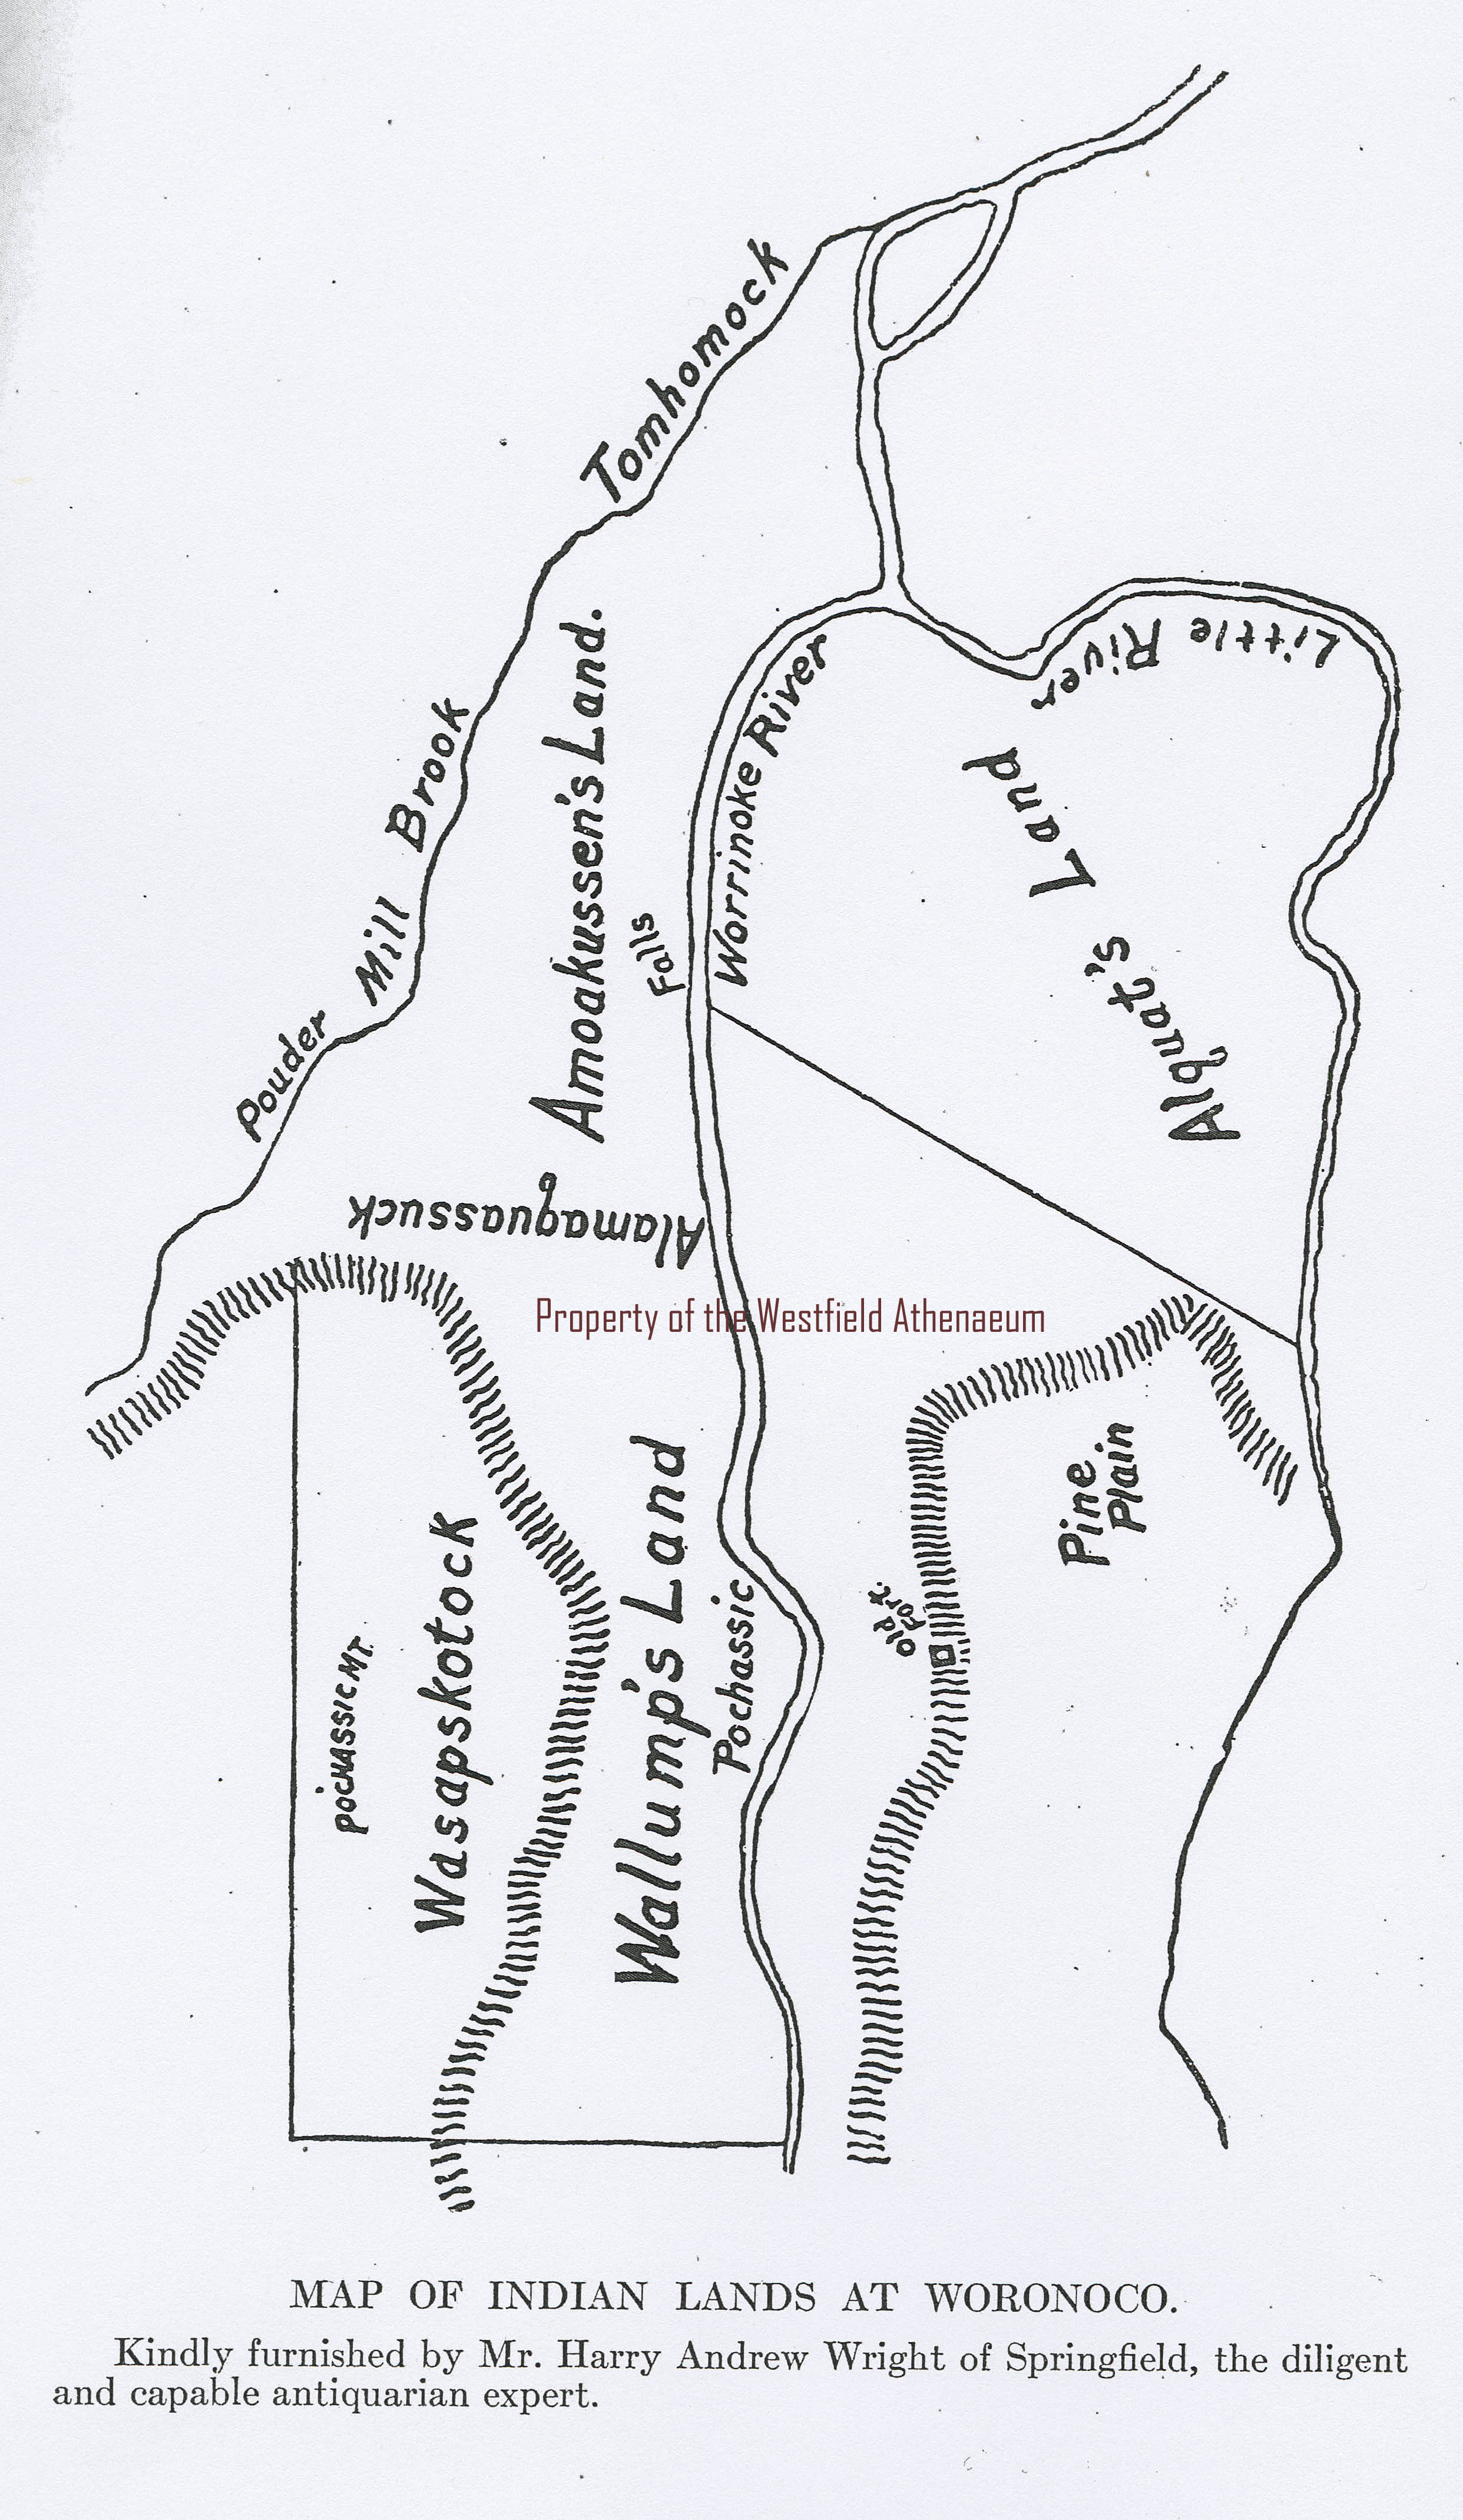 Tomhomock
Pouder Mill Brook
Amoakussen's Land.
Falls
Worrinoke River
Little River
Alquat's Land
Alamaquassuck
Property of the Westfield Athenaeum
POCHASSIC MT.
Wasapskotock
Wallump's Land
Pochassic
Old Fort.
Pine
Plain
MAP OF INDIAN LANDS AT WORONOCO.
Kindly furnished by Mr. Harry Andrew Wright of Springfield, the diligent
and capable antiquarian expert.